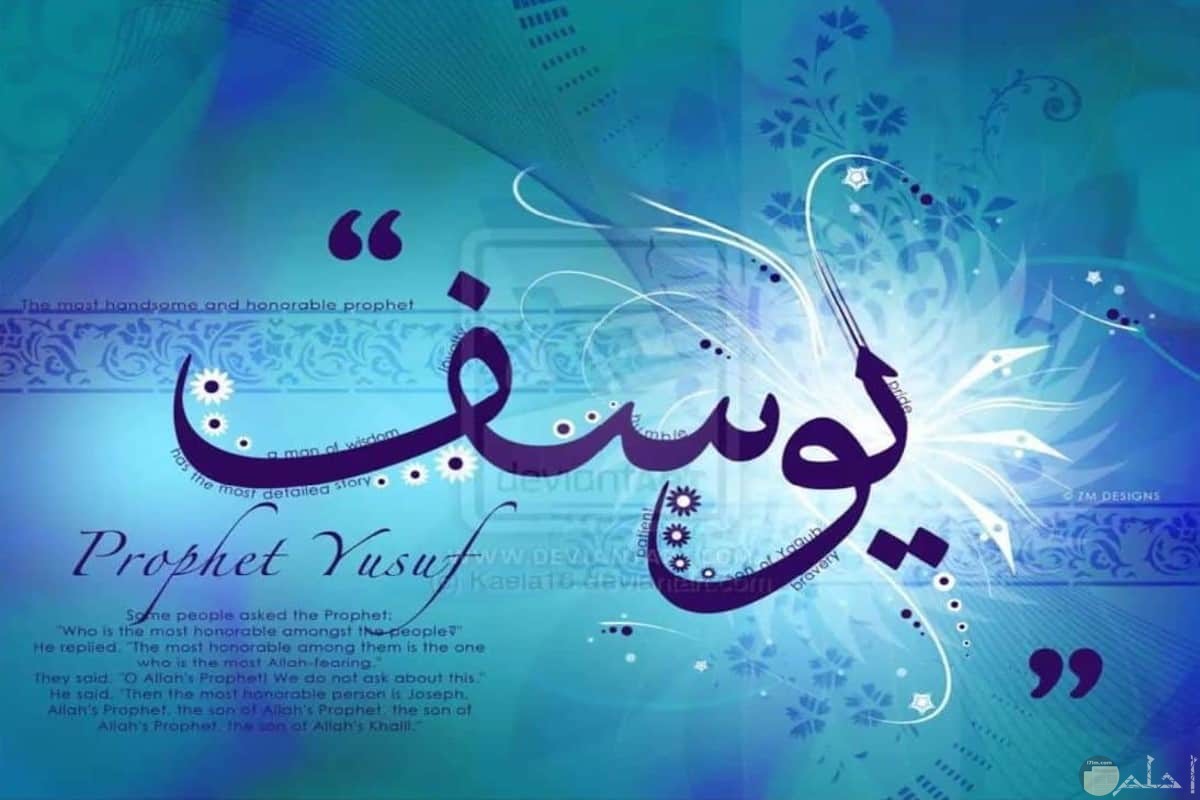 The most handsome and honorable prophet
“
يوسف
loyalty
pride
humble
a man of wisdom
has the most detailed story
patient
son of Yaqub
bravery
© ZM DESIGNS
deviantART
WWW.DEVIANTART.COM
(c) Kaela16.deviantart.com
Prophet Yusuf
Some people asked the Prophet:
"Who is the most honorable amongst the people?"
He replied, "The most honorable among them is the one
who is the most Allah-fearing."
They said, "O Allah's Prophet! We do not ask about this."
He said, "Then the most honorable person is Joseph,
Allah's Prophet, the son of Allah's Prophet, the son of
Allah's Prophet, the son of Allah's Khalil."
”
احلم